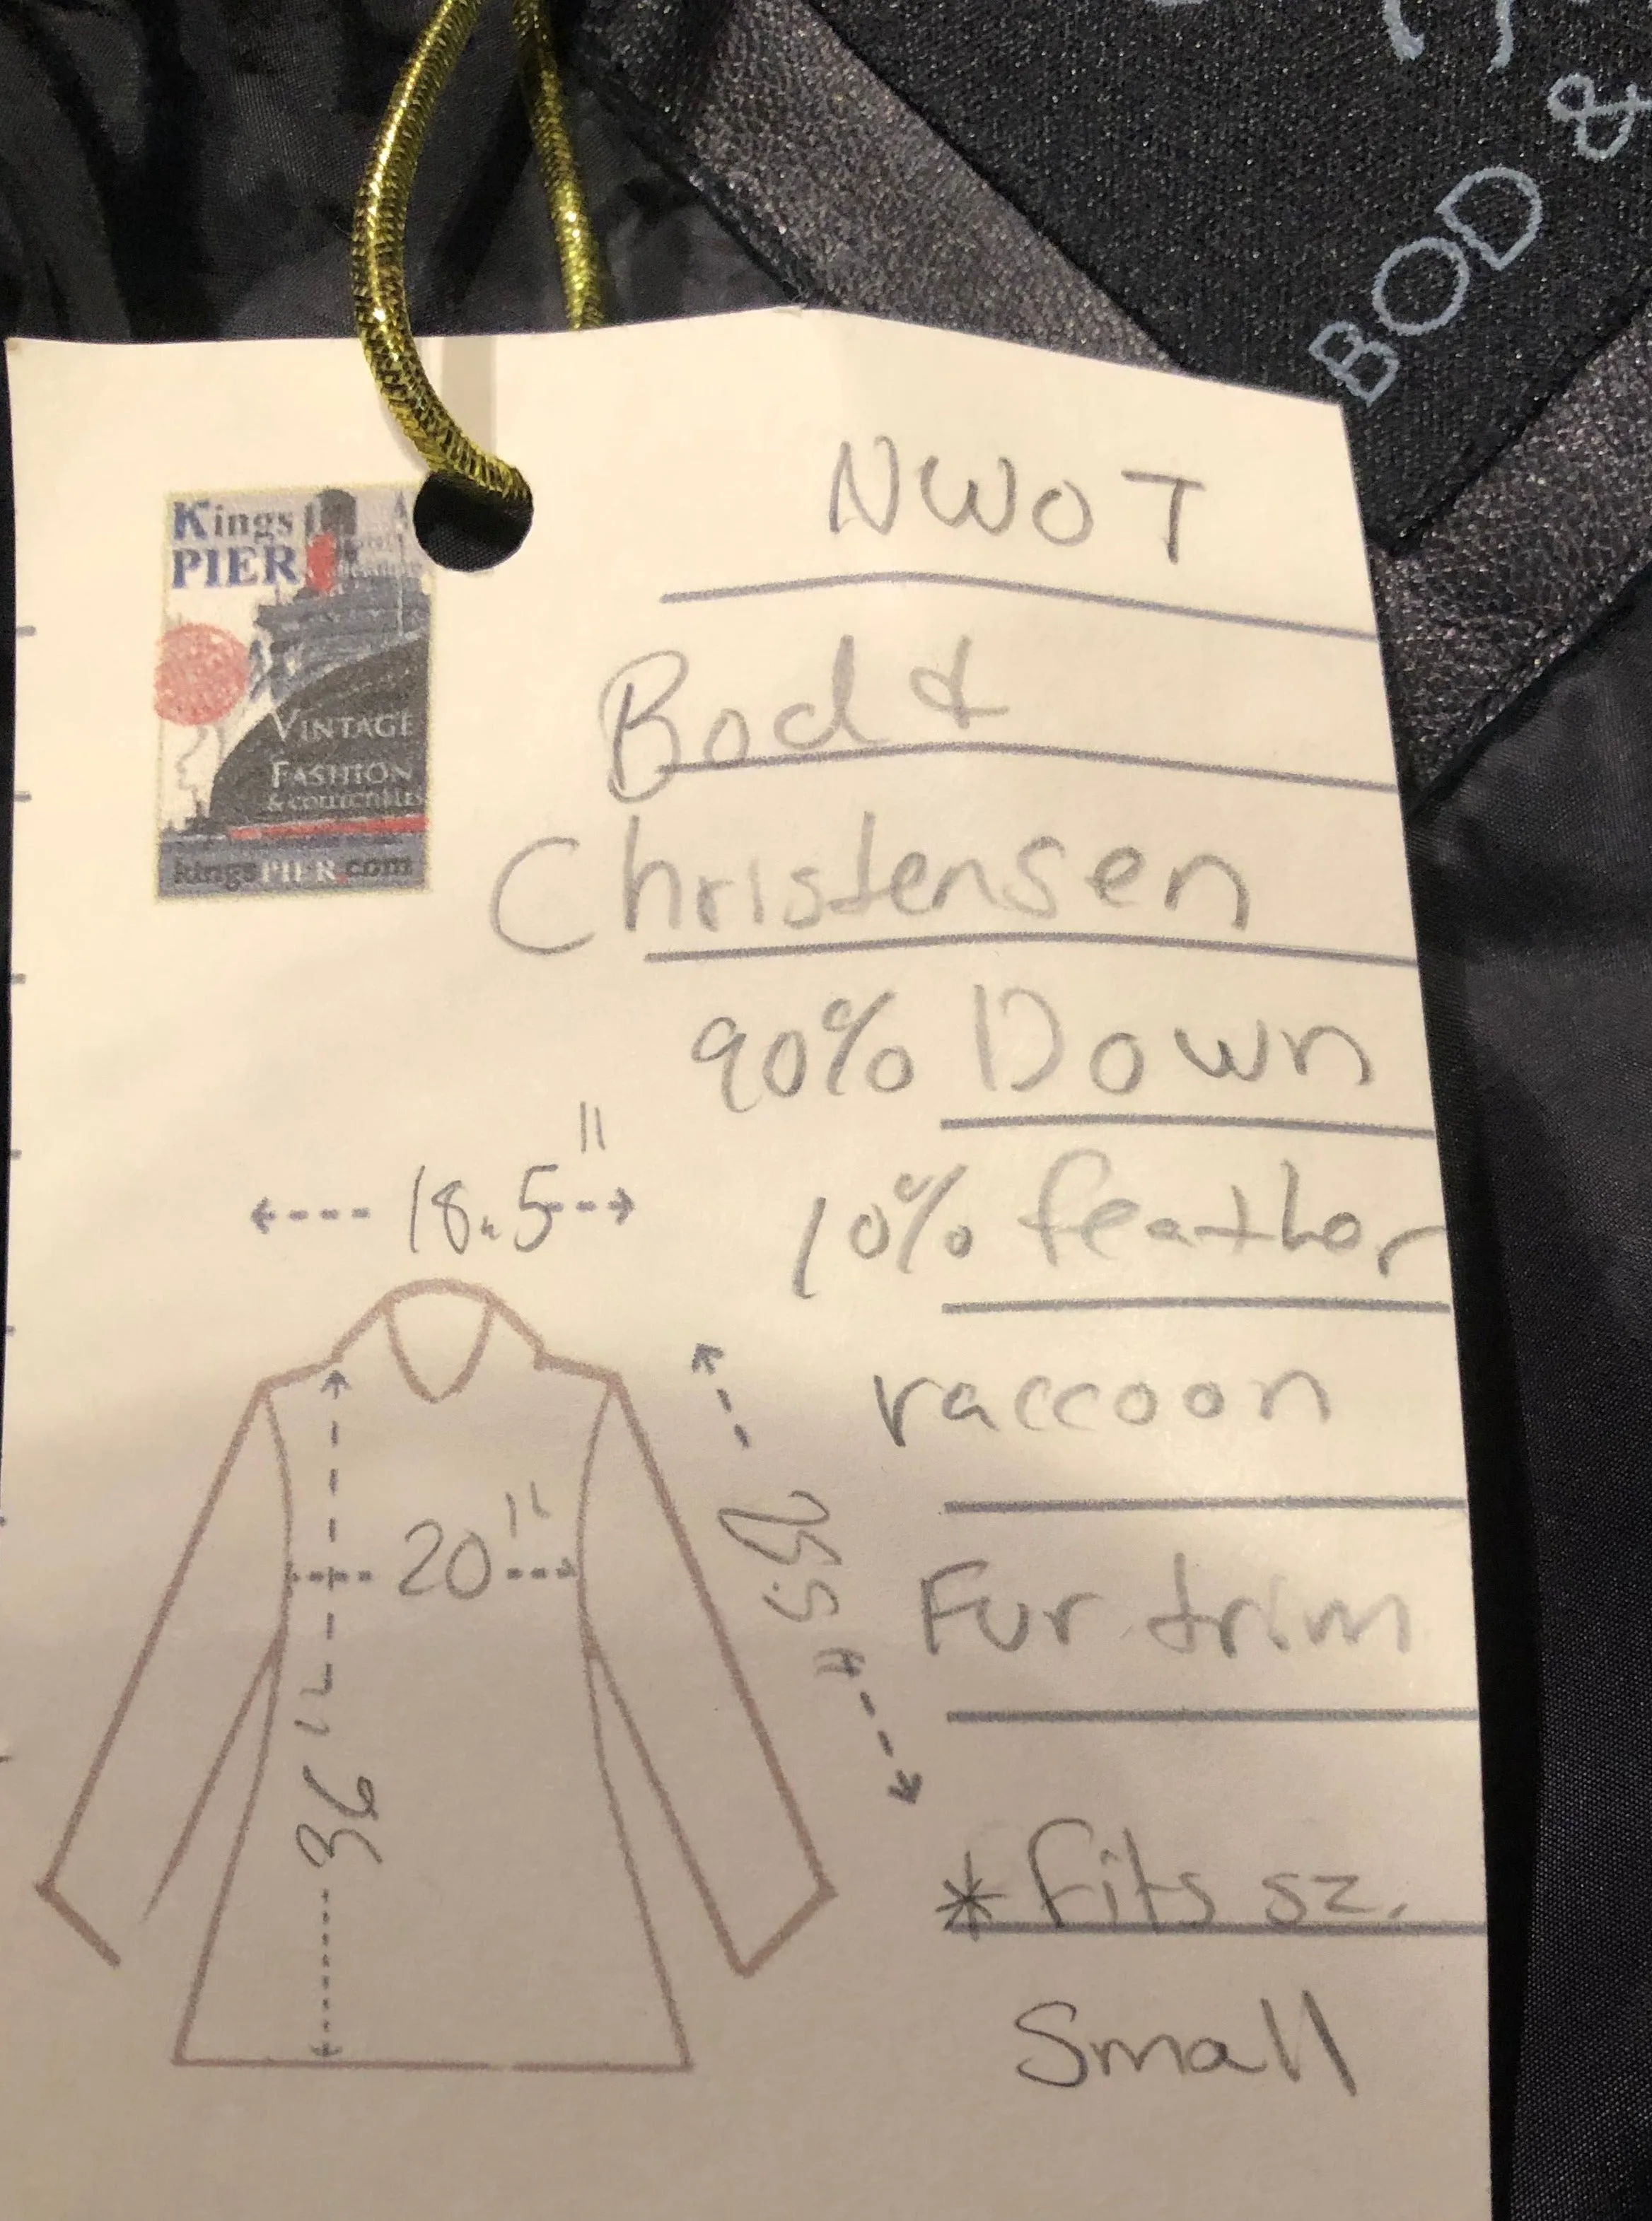 &
BOD
Kings
PIER
VINTAGE
FASHION
& COLLECTIBLES
kingsPIER.com
NWOT
Bod &
Christensen
90% Down
10% feather
raccoon
Fur trim
* fits sz.
Small
18.5"
20"
36"
25.5"